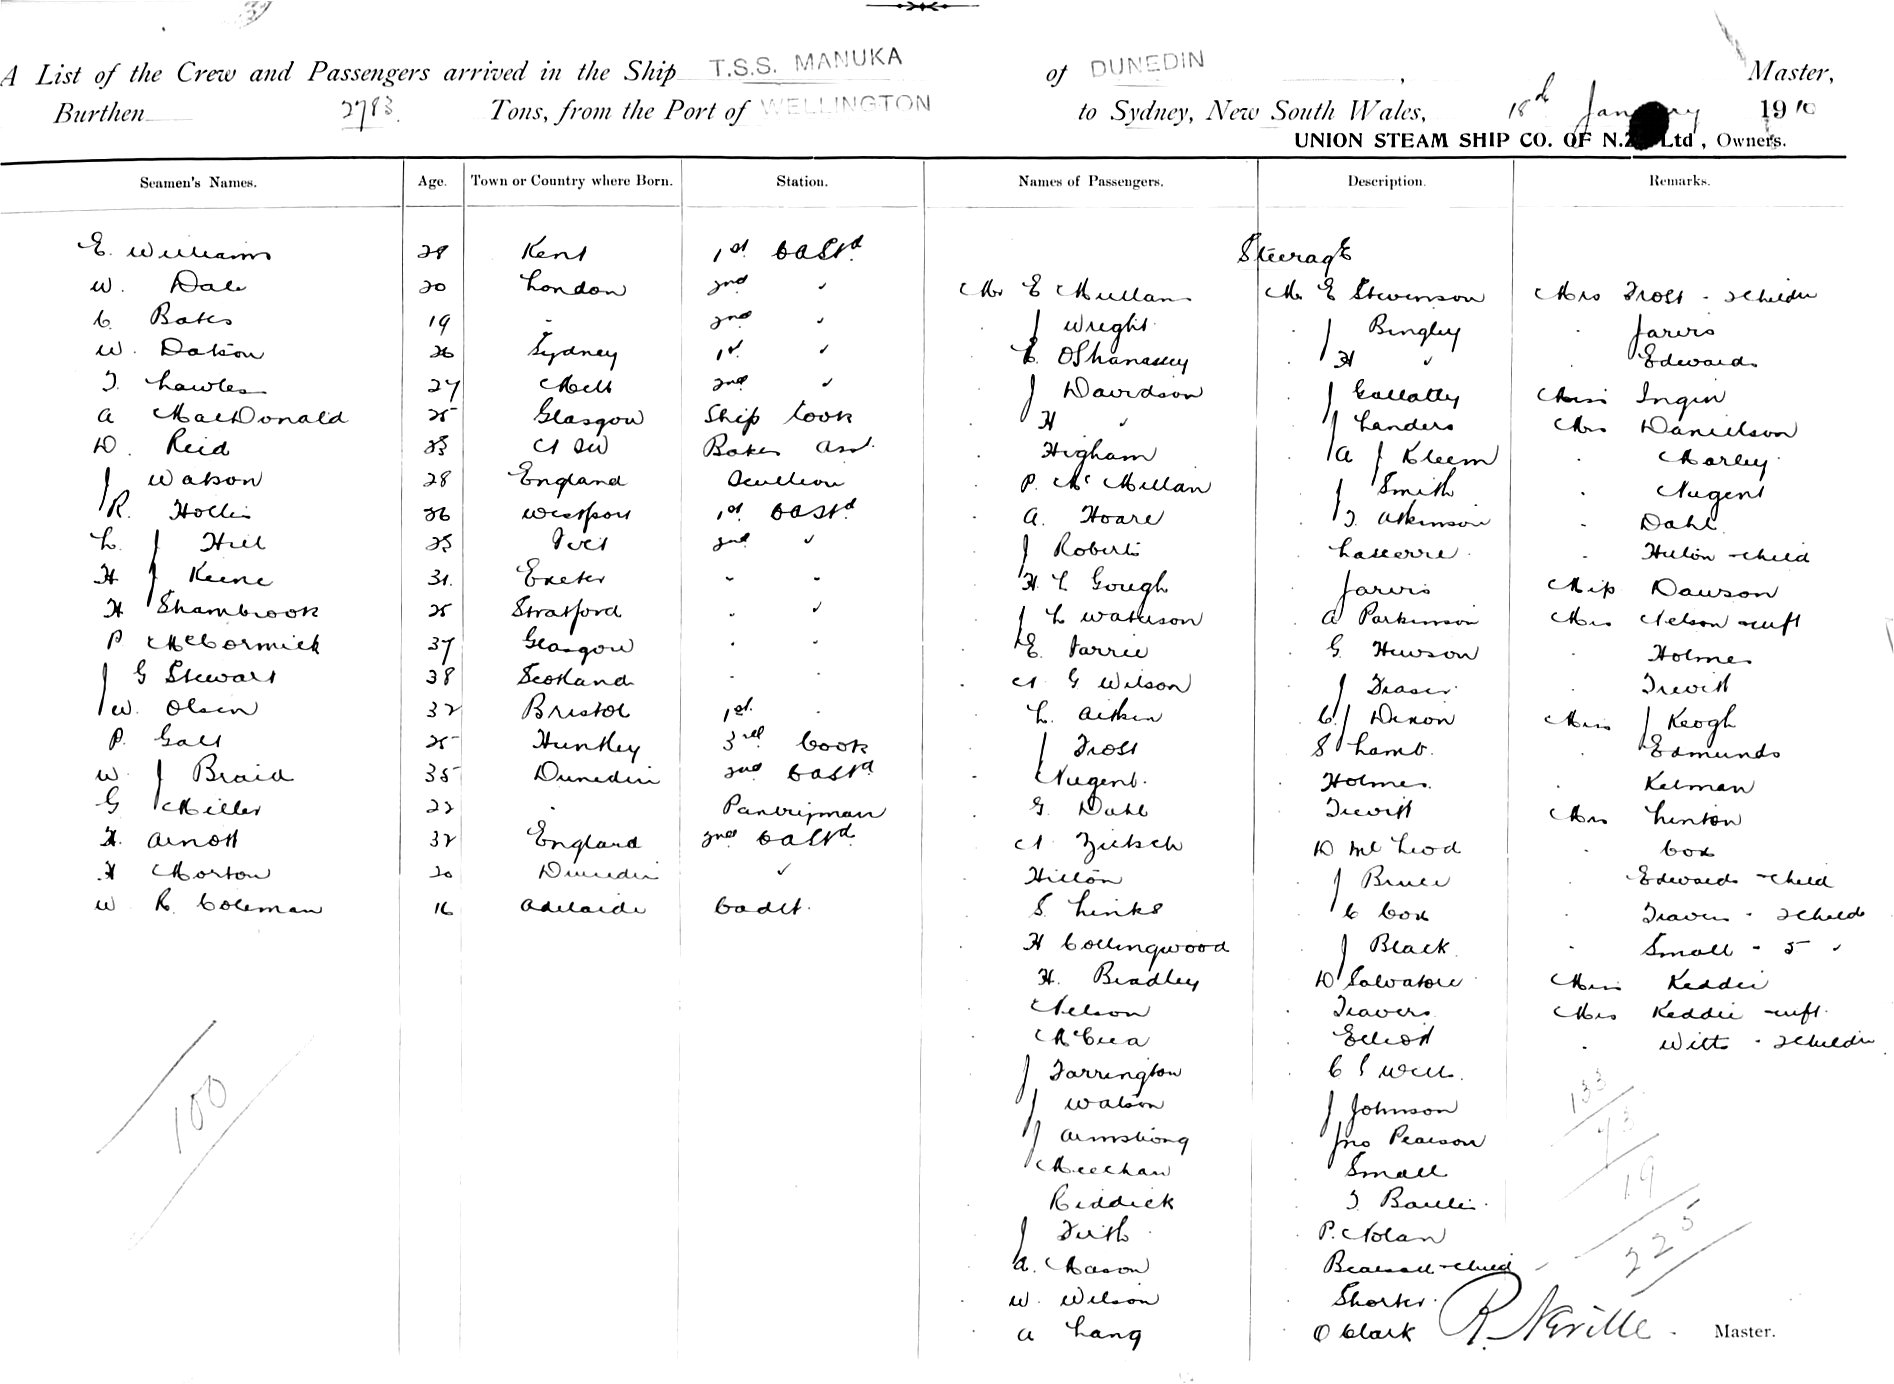 A List of the Crew and Passengers arrived in the Ship T.S.S. MANUKA of DUNEDIN , Master,
Burthen 2783. Tons, from the Port of WELLINGTON to Sydney, New South Wales, 18th January 1910
UNION STEAM SHIP CO. OF N.Z. Ltd, Owners.
Seamen's Names. Age. Town or Country where Born. Station. Names of Passengers. Description. Remarks.
E. Williams 28 Kent 1st Cabin Std Steerage
W. Dale 20 London 2nd " Mr E Mullans Mr E Stevenson Mrs Frost - 2 childn
C. Bates 19 - 2nd " J Wright J Bingley " Jarvis
W. Datson 26 Sydney 1st " E. OShanassy H " " Edwards
T. Lawles 27 Melb 2nd " J Davidson J Gallatly Miss Ingin
A MacDonald 25 Glasgow Ship Cook H " J Landers Mrs Danielson
D. Reid N S W Baker Asst. Higham A J Kleem " Marley
J Watson 28 England Scullion P. McMillan J Smith " Nugent
R. Hollis 36 Westport 1st A. Hoare T. Atkinson " Dahl
L. J Hill 25 2nd " J Roberts Laserre " Hilton - child
H J Keene 31. Exeter " " H. L Gough Jarvis Miss Dawson
H Shambrook 25 Stratford " " J L Waterson A Parkinson Mrs Nelson - inft
P McCormick 37 Glasgow " " E. Parrie G. Hewson " Holmes
J G Stewart 38 Scotland " " N G Wilson J Fraser " Trevitt
J W. Olsen 32 Bristol 1st " L. Aitken C. J Dixon Miss J Keogh
P. Galt 25 Huntley 3rd Cook J Frost S Lamb. " Edmunds
W J Braid 35 Dunedin 2nd Nugent. Holmes. " Kelman
G Miller 22 " Pantryman G. Dahl Trevitt Mrs Linton
H. Arnott 32 England 2nd N. Zietsch D McLeod " Cox
H Morton 20 Dunedin " Hilton J Bruce " Edwards - child
W R. Coleman 16 Adelaide Cadet. S. Links C Cox " Travers - 2 childn
H Collingwood J Black " Small - 5 "
H. Bradley D Salvatore Miss Keddie
Nelson Travers Mrs Keddie - inft.
McCrea Elliott " Witts - 2 childn
J Farrington C J Wells.
J Watson J Johnson 133
J Armstrong Jno Pearson 73
100 Meechan Small
Riddick T. 19
J Firth P. Nolan 225
A. Mason - child
W. Wilson Shorter.
A Lang O Clark R. Neville. Master.